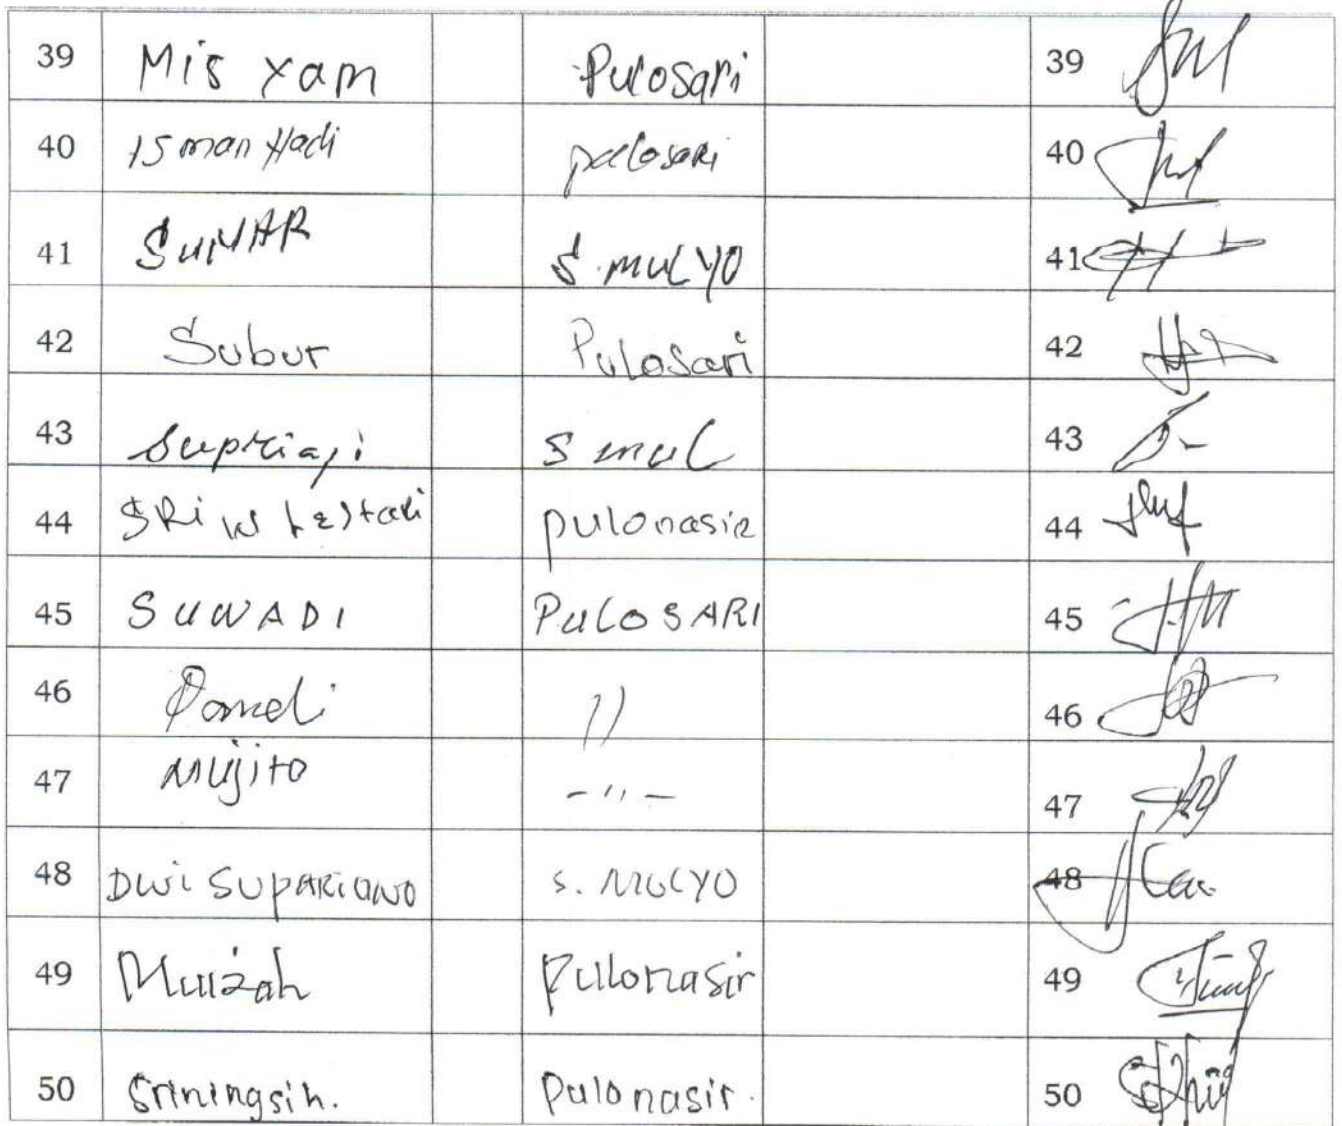 39 Mis Yam Pulosari 39
40 Isman Hadi pulosari 40
41 SUNAR S. MULYO 41
42 Subur Pulosari 42
43 Supriaji S mul 43
44 SRi W Lestari pulonasir 44
45 SUWADI PULOSARI 45
46 " 46
47 Mujito - " - 47
48 DWi SUPARiONO S. MULYO 48
49 Muizah Pulonasir 49
50 Sriningsih. Pulonasir. 50